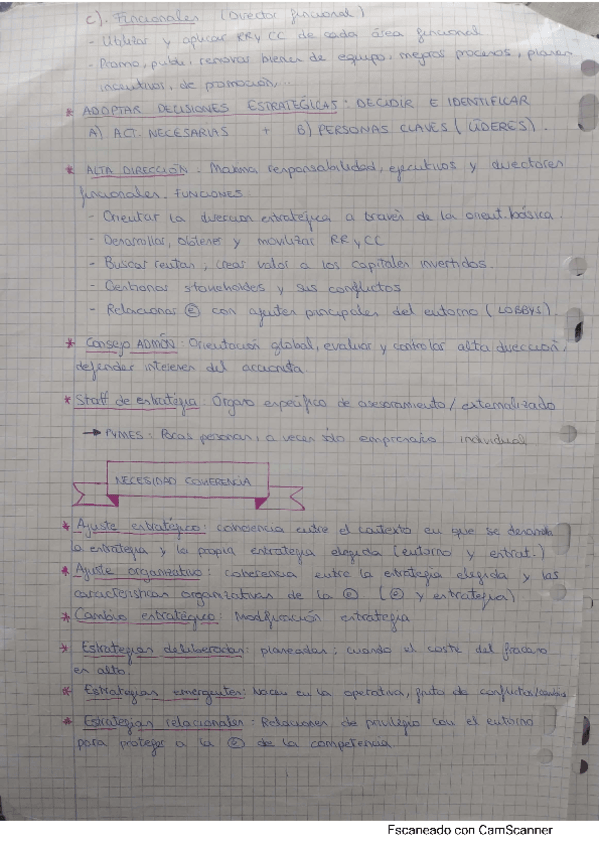 c). Funcionales (Director funcional)
- Utilizar y aplicar RR y CC de cada área funcional
- Promo, publi, renovar bienes de equipo, mejoras procesos, planes
incentivos, de promoción,...
* ADOPTAR DECISIONES ESTRATÉGICAS: DECIDIR E IDENTIFICAR
A) ACT. NECESARIAS + B) PERSONAS CLAVES (LÍDERES).
* ALTA DIRECCIÓN: Máxima responsabilidad, ejecutivos y directores
funcionales. FUNCIONES
- Orientar la dirección estratégica a través de la orient. básica.
- Desarrollar, obtener y movilizar RR y CC
- Buscar rentas, crear valor a los capitales invertidos.
- Gestionar stakeholders y sus conflictos
- Relacionar ⓔ con agentes principales del entorno (LOBBYS).
* Consejo ADMÓN: Orientación global, evaluar y controlar alta dirección,
defender intereses del accionista.
* Staff de estrategia: Órgano específico de asesoramiento / externalizado
→ PYMES: Pocas personas, a veces sólo empresario individual
NECESIDAD COHERENCIA
* Ajuste estratégico: coherencia entre el contexto en que se demanda
la estrategia y la propia estrategia elegida (entorno y estrat.)
* Ajuste organizativo: coherencia entre la estrategia elegida y las
características organizativas de la ⓔ (ⓔ y estrategia)
* Cambio estratégico: Modificación estrategia
* Estrategias deliberadas: planeadas; cuando el coste del fracaso
es alto.
* Estrategias emergentes: Nacen en la operativa, fruto de conflictos/cambios
* Estrategias relacionales: Relaciones de privilegio con el entorno
para proteger a la ⓔ de la competencia
Escaneado con CamScanner